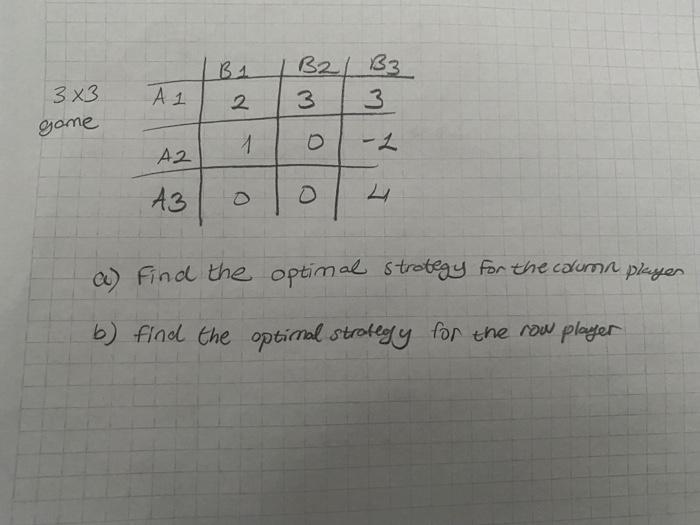 B1 B2 B3
3x3 game A1 2 3 3
A2 1 0 -1
A3 0 0 4
a) Find the optimal strategy for the column player
b) find the optimal strategy for the row player